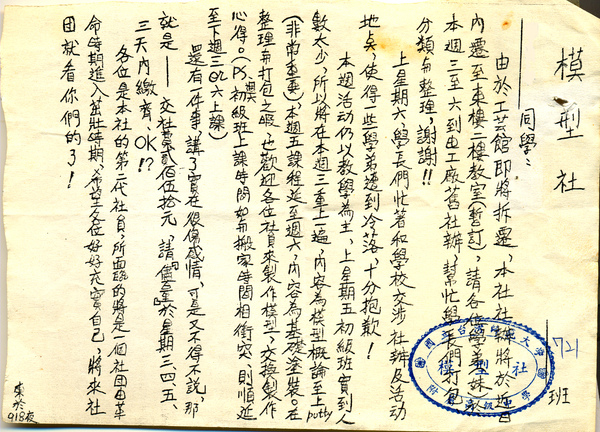 模型社
721班
同學：
由於工芸館即將拆遷，本社社辦將於近日
內遷至東樓二樓教室(暫訂)，請各位學弟妹於
本週三至六到由工廠舊社辦，幫忙學長們打包
分類與整理，謝謝!!
上星期六，學長們忙著和學校交涉社辦及活動
地點，使得一些學弟遭到冷落，十分抱歉！
本週活動仍以教學為主，上星期五初級班實到人
數太少，所以將在本週三重上一遍，內容為模型概論至上putty
(非常重要)，本週五課程延至週六，內容為基礎塗裝。在
整理與打包之暇，也歡迎各位社員來製作模型，交換製作
心得。(PS.初級班上課時間如與搬家時間相衝突，則順延
至下週三or六上課)
還有一件事，講了實在很傷感情，可是又不得不說，那
就是──交社費貳佰伍拾元，請「儘量」於星期三、四、五、
三天內繳齊，OK!?
各位是本社的第二代社員，所面臨的將是一個社團由革
命時期進入茁壯時期，希望各位好好充實自己，將來社
團就看你們的了！
918夜
國立台灣師大
模型社
附屬高級中學